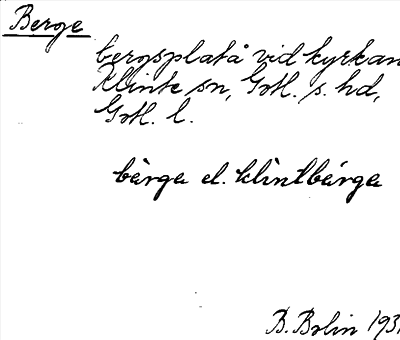 Berge
bergsplatå vid kyrkan
Klinte sn, Gotl. s. hd,
Gotl. l.
bàrga el. klìntbárga
B. Bolin 193